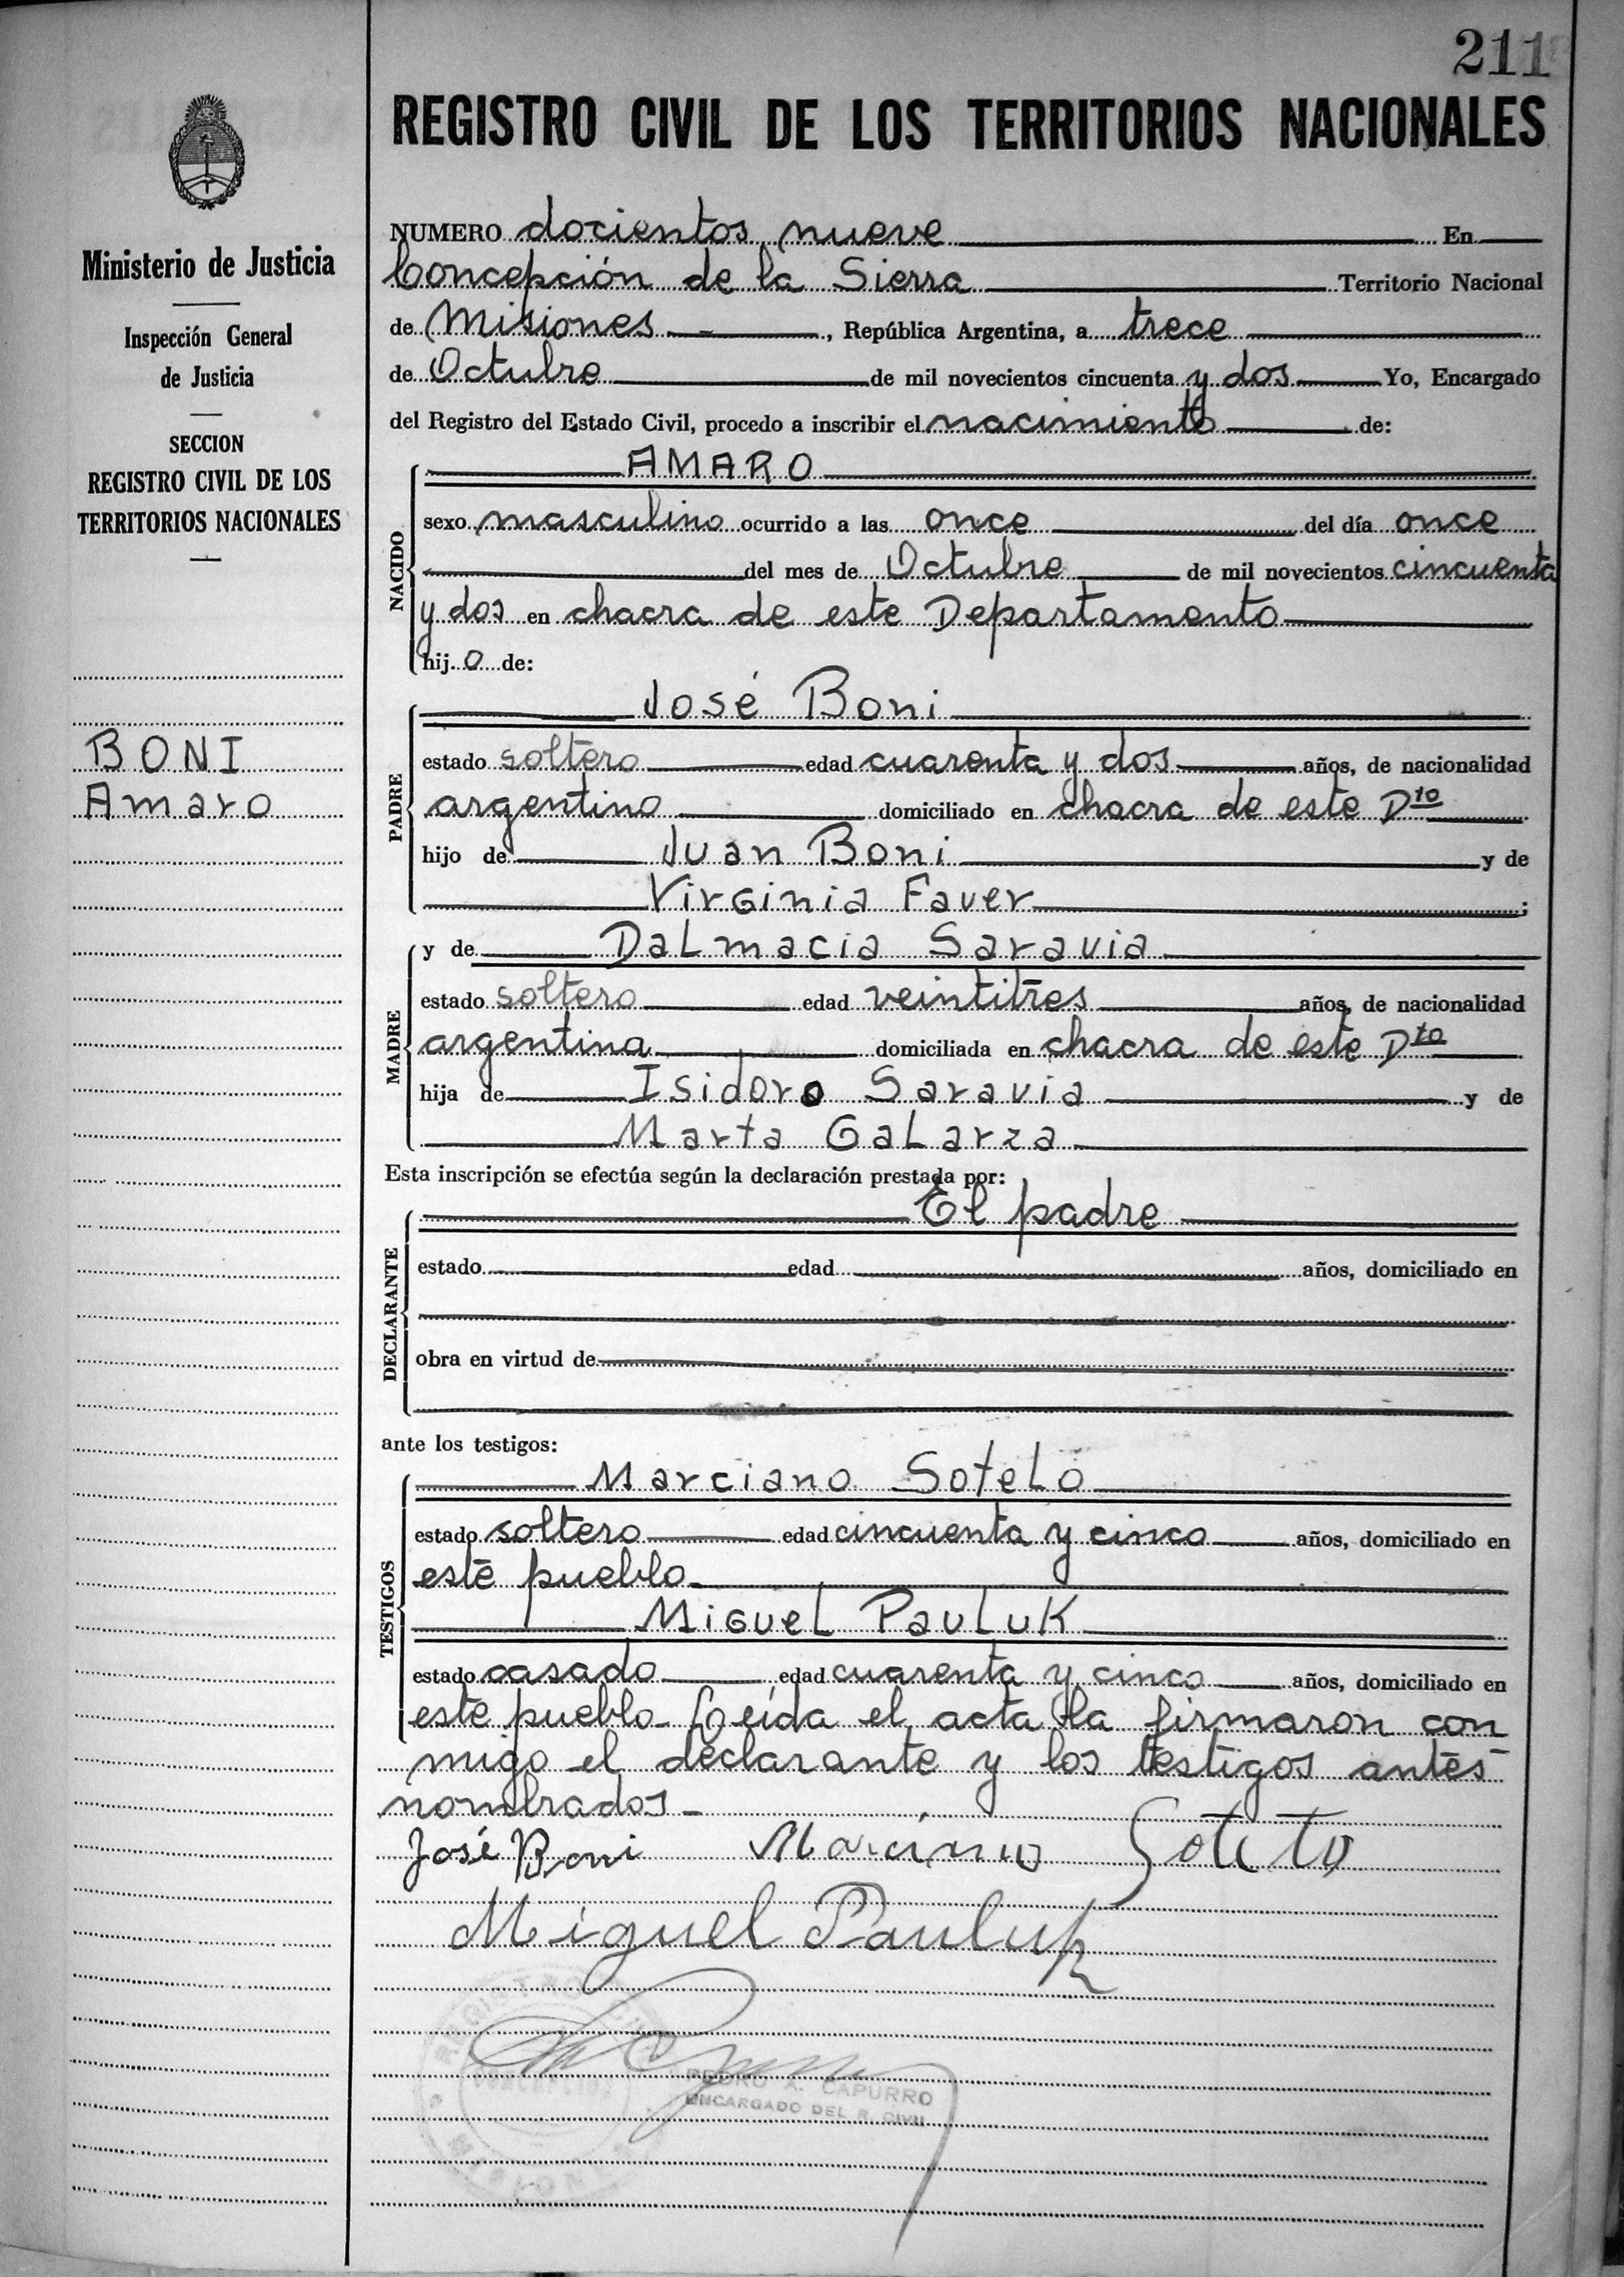 211
REGISTRO CIVIL DE LOS TERRITORIOS NACIONALES
Ministerio de Justicia
Inspección General
de Justicia
SECCION
REGISTRO CIVIL DE LOS
TERRITORIOS NACIONALES
BONI
Amaro
NUMERO docientos nueve En
Concepción de la Sierra Territorio Nacional
de Misiones, República Argentina, a trece
de Octubre de mil novecientos cincuenta y dos Yo, Encargado
del Registro del Estado Civil, procedo a inscribir el nacimiento de:
AMARO
NACIDO
sexo masculino ocurrido a las once del día once
del mes de Octubre de mil novecientos cincuenta
y dos en chacra de este Departamento
hijo de:
José Boni
PADRE
estado soltero edad cuarenta y dos años, de nacionalidad
argentino domiciliado en chacra de este Dto
hijo de Juan Boni y de
Virginia Faver;
y de Dalmacia Saravia
MADRE
estado soltero edad veintitres años, de nacionalidad
argentina domiciliada en chacra de este Dto
hija de Isidoro Saravia y de
Marta Galarza
Esta inscripción se efectúa según la declaración prestada por:
El padre
DECLARANTE
estado edad años, domiciliado en
obra en virtud de
ante los testigos:
Marciano Sotelo
TESTIGOS
estado soltero edad cincuenta y cinco años, domiciliado en
este pueblo
Miguel Pauluk
estado casado edad cuarenta y cinco años, domiciliado en
este pueblo - Leída el acta la firmaron con
migo el declarante y los testigos antes
nombrados -
José Boni Marciano Sotelo
Miguel Pauluk
REGISTRO CIVIL
CONCEPCION
MISIONES
PEDRO A. CAPURRO
ENCARGADO DEL R. CIVIL